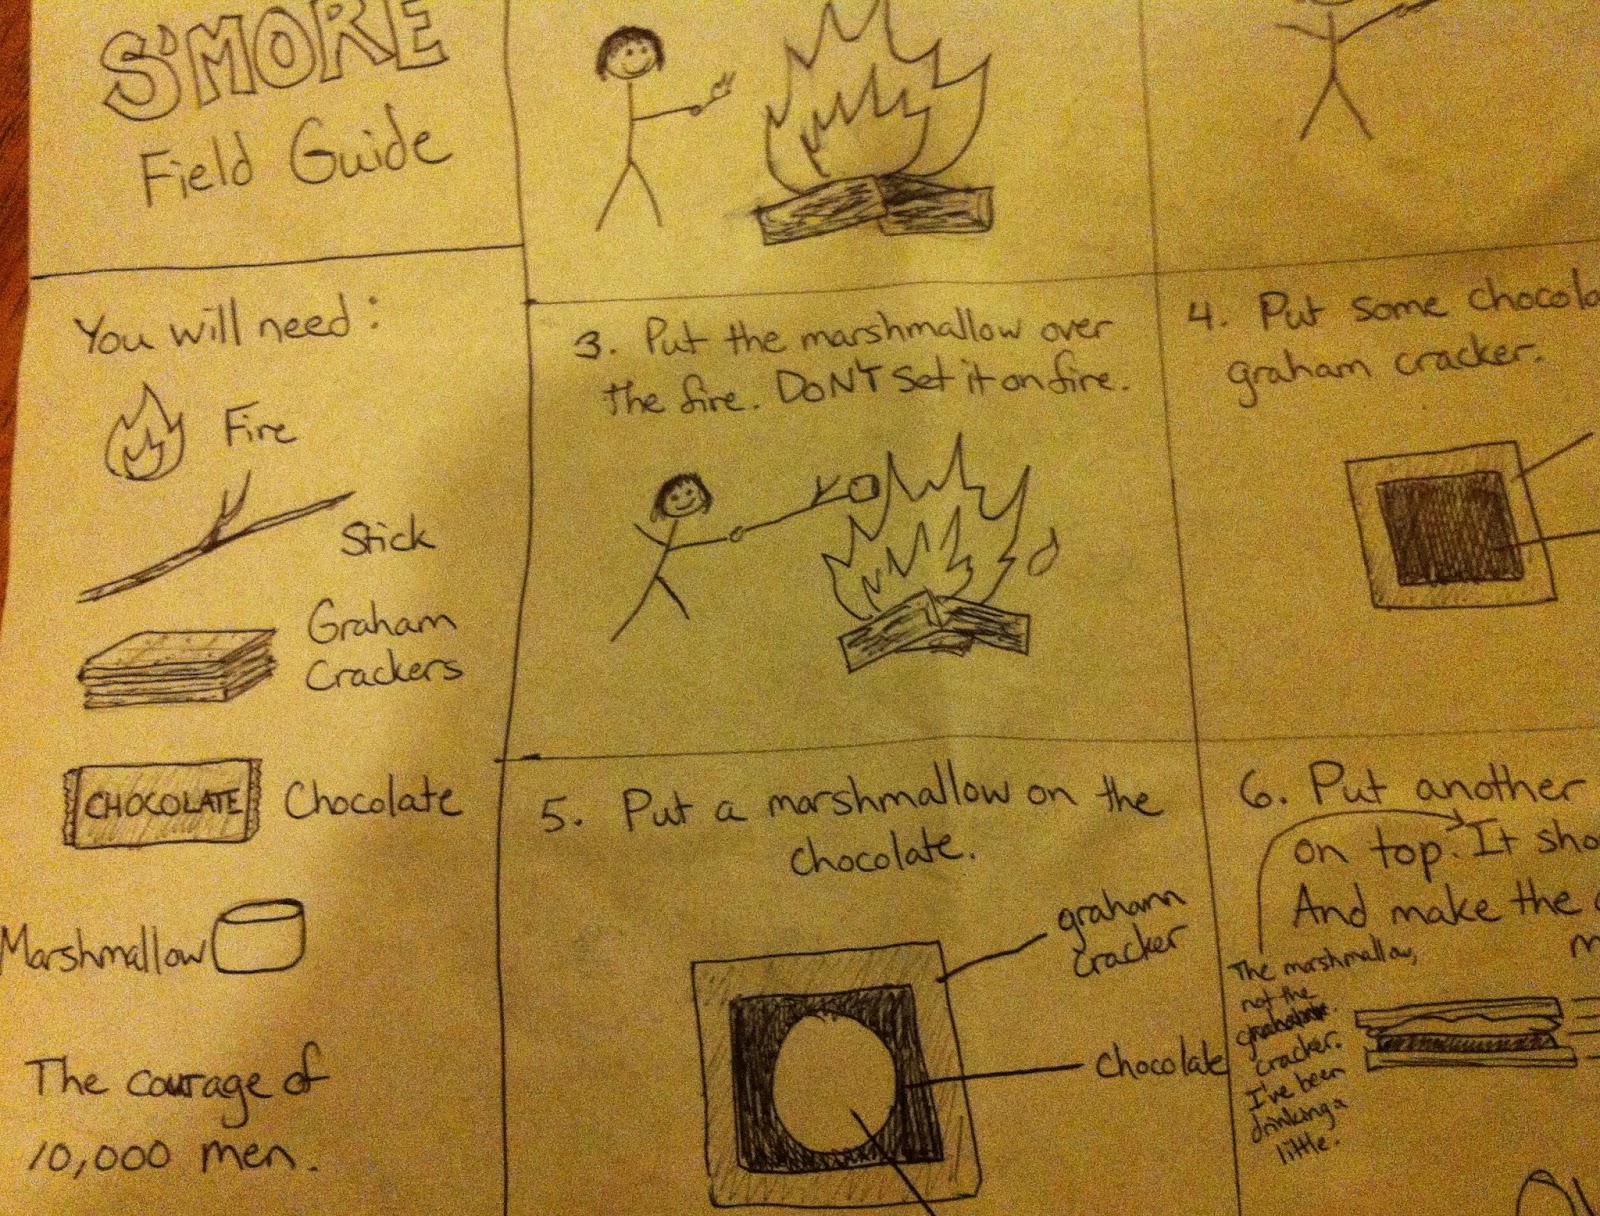 S'MORE
Field Guide
You will need:
Fire
Stick
Graham
Crackers
CHOCOLATE
Chocolate
Marshmallow
The courage of
10,000 men.
3. Put the marshmallow over
the fire. DON'T set it on fire.
4. Put some chocola
graham cracker.
5. Put a marshmallow on the
chocolate.
graham
cracker
Chocolate
6. Put another
on top. It sho
And make the
m
The marshmallow,
not the
cracker.
I've been
drinking a
little.